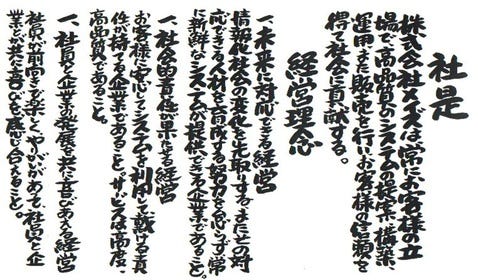 社是
株式会社メイズは常にお客様の立
場で高品質のシステムの提案、構築、
運用、また販売を行い、お客様の信頼を
得て社会に貢献する。
経営理念
一、未来に対応できる経営
情報化社会の変化を先取りする。またその対
応できる人材を育成する努力を怠らず、常
に新鮮なシステムが提供できる企業であること。
一、社会的責任が果たせる経営
お客様に安心してシステムを利用して戴ける責
任が持てる企業であること。サービスは高度、
高品質であること。
一、社員と企業の発展を共に喜びあえる経営
社員が前向きで楽しく、やりがいがあって、社員と企
業とが共に喜びを感じ合えること。